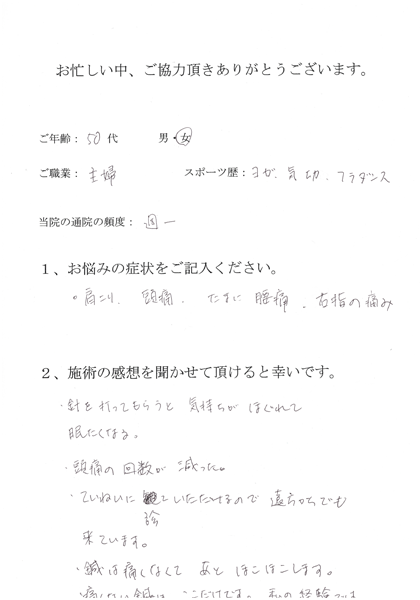 お忙しい中、ご協力頂きありがとうございます。
ご年齢：50代　男・女
ご職業：主婦　スポーツ歴：ヨガ、気功、フラダンス
当院の通院の頻度：週一
１、お悩みの症状をご記入ください。
。肩こり、頭痛、たまに腰痛、右指の痛み
２、施術の感想を聞かせて頂けると幸いです。
・針を打ってもらうと気持ちがほぐれて
眠たくなる。
・頭痛の回数が減った。
・ていねいに診ていただけるので遠方からでも
来ています。
・鍼は痛くなくてあとほこほこします。
・痛くない鍼はここだけです。私の経験では